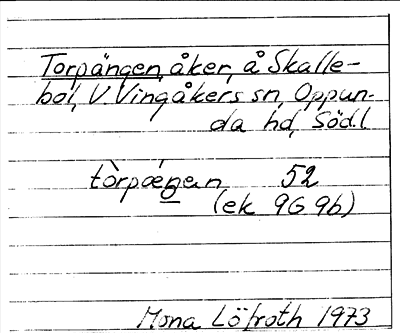 Torpängen, åker, å Skalle-
bol, V. Vingåkers sn, Oppun-
da hd, Södl.
tòrpæŋen 52
(ek 9G 9b)
Mona Löfroth 1973